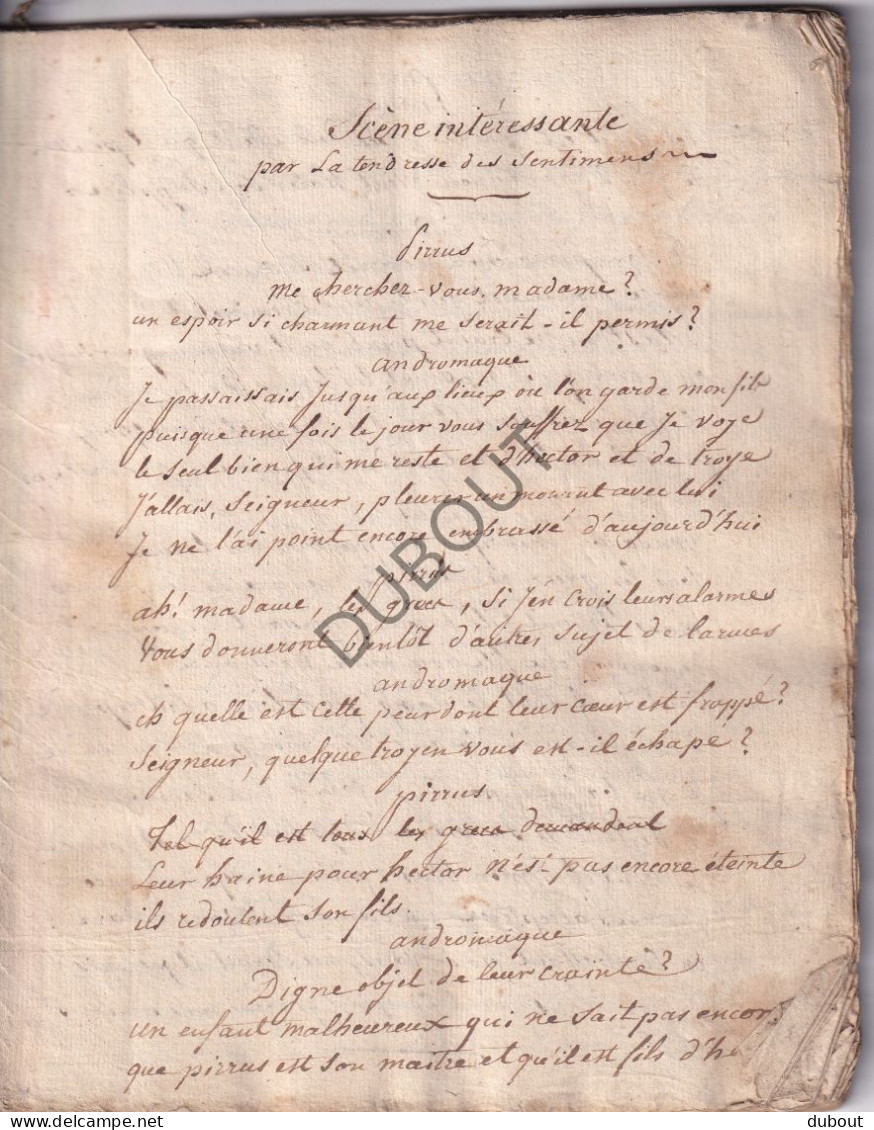 Scène intéressante
par La tendresse des Sentimens
Pirrus
me cherchez-vous, madame?
un espoir si charmant me serait-il permis?
andromaque
Je passaissais Jusqu'aux lieux où l'on garde mon fils
puisque une fois le jour vous souffrez que Je voye
le seul bien qui me reste et d'hector et de troye
J'allais, Seigneur, pleurer un moment avec lui
Je ne l'ai point encore embrassé d'aujourd'hui
pirrus
ah! madame, les grecs, si J'en crois leurs alarmes
Vous donneront bientôt d'autres sujet de larmes
andromaque
eh quelle est cette peur dont leur cœur est frappé?
Seigneur, quelque troyen vous est-il échapé?
pirrus
Tel qu'il est tous les grecs demandent
Leur haine pour hector n'est pas encore éteinte
ils redoutent son fils.
andromaque
Digne objet de leur crainte?
un enfant malheureux qui ne sait pas encor
que pirrus est son maitre et qu'il est fils d'he
DUBOUT
delcampe.net
dubout